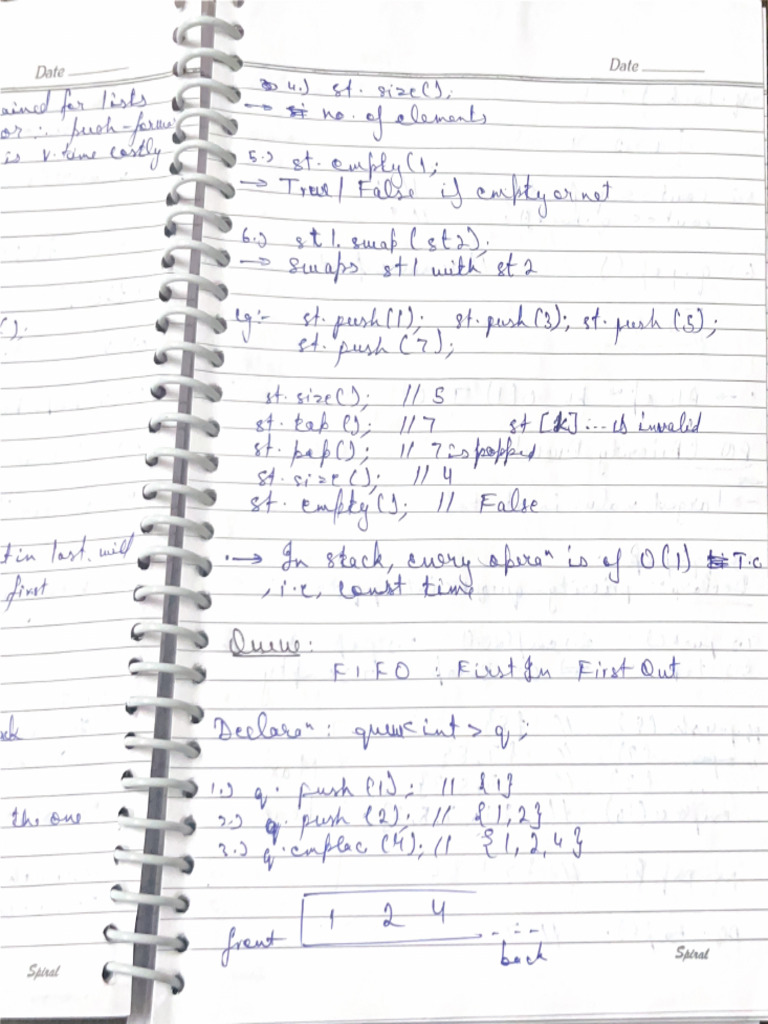 Date
ained for lists
or :. push-forwa
is v. time costly
();
t in last. will
first
the one
Spiral
Date
4.) st. size();
→ no. of elements
5.) st. empty();
→ True/ False if empty or not
6.) st1. swap(st2);
→ swaps st1 with st2
eg:- st. push(1); st. push(3); st. push(5);
st. push(7);
st. size(); // 5
st. top(); // 7 st[k] ... is invalid
st. pop(); // 7 is popped
st. size(); // 4
st. empty(); // False
.→ In stack, every operaⁿ is of O(1) T.C
, i.e, const time
Queue:
FIFO : First In First Out
Declaraⁿ: queue<int> q;
1.) q. push(1); // {1}
2.) q. push(2); // {1,2}
3.) q. emplac(4); // {1,2,4}
1 2 4
front
back
Spiral